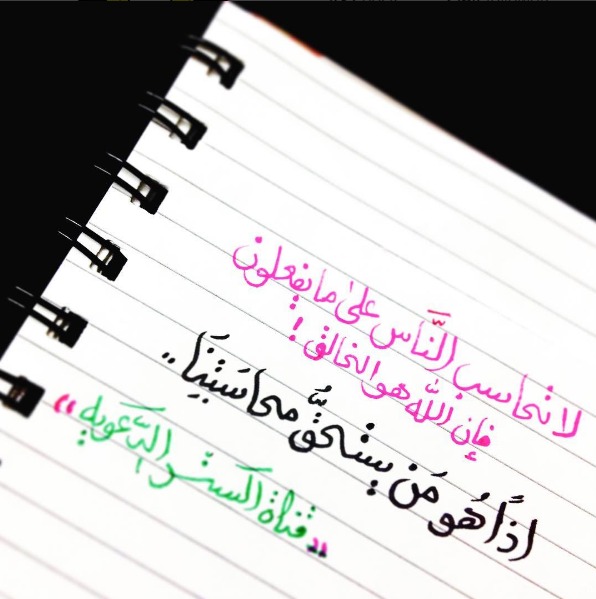 لا تحاسب النَّاس على ما يفعلون
فإن اللّٰه هو الخالق !
اذاً هُو مَن يستحقُّ محاسَبتِنَا ..
" قناة الستر الدَّعويه "